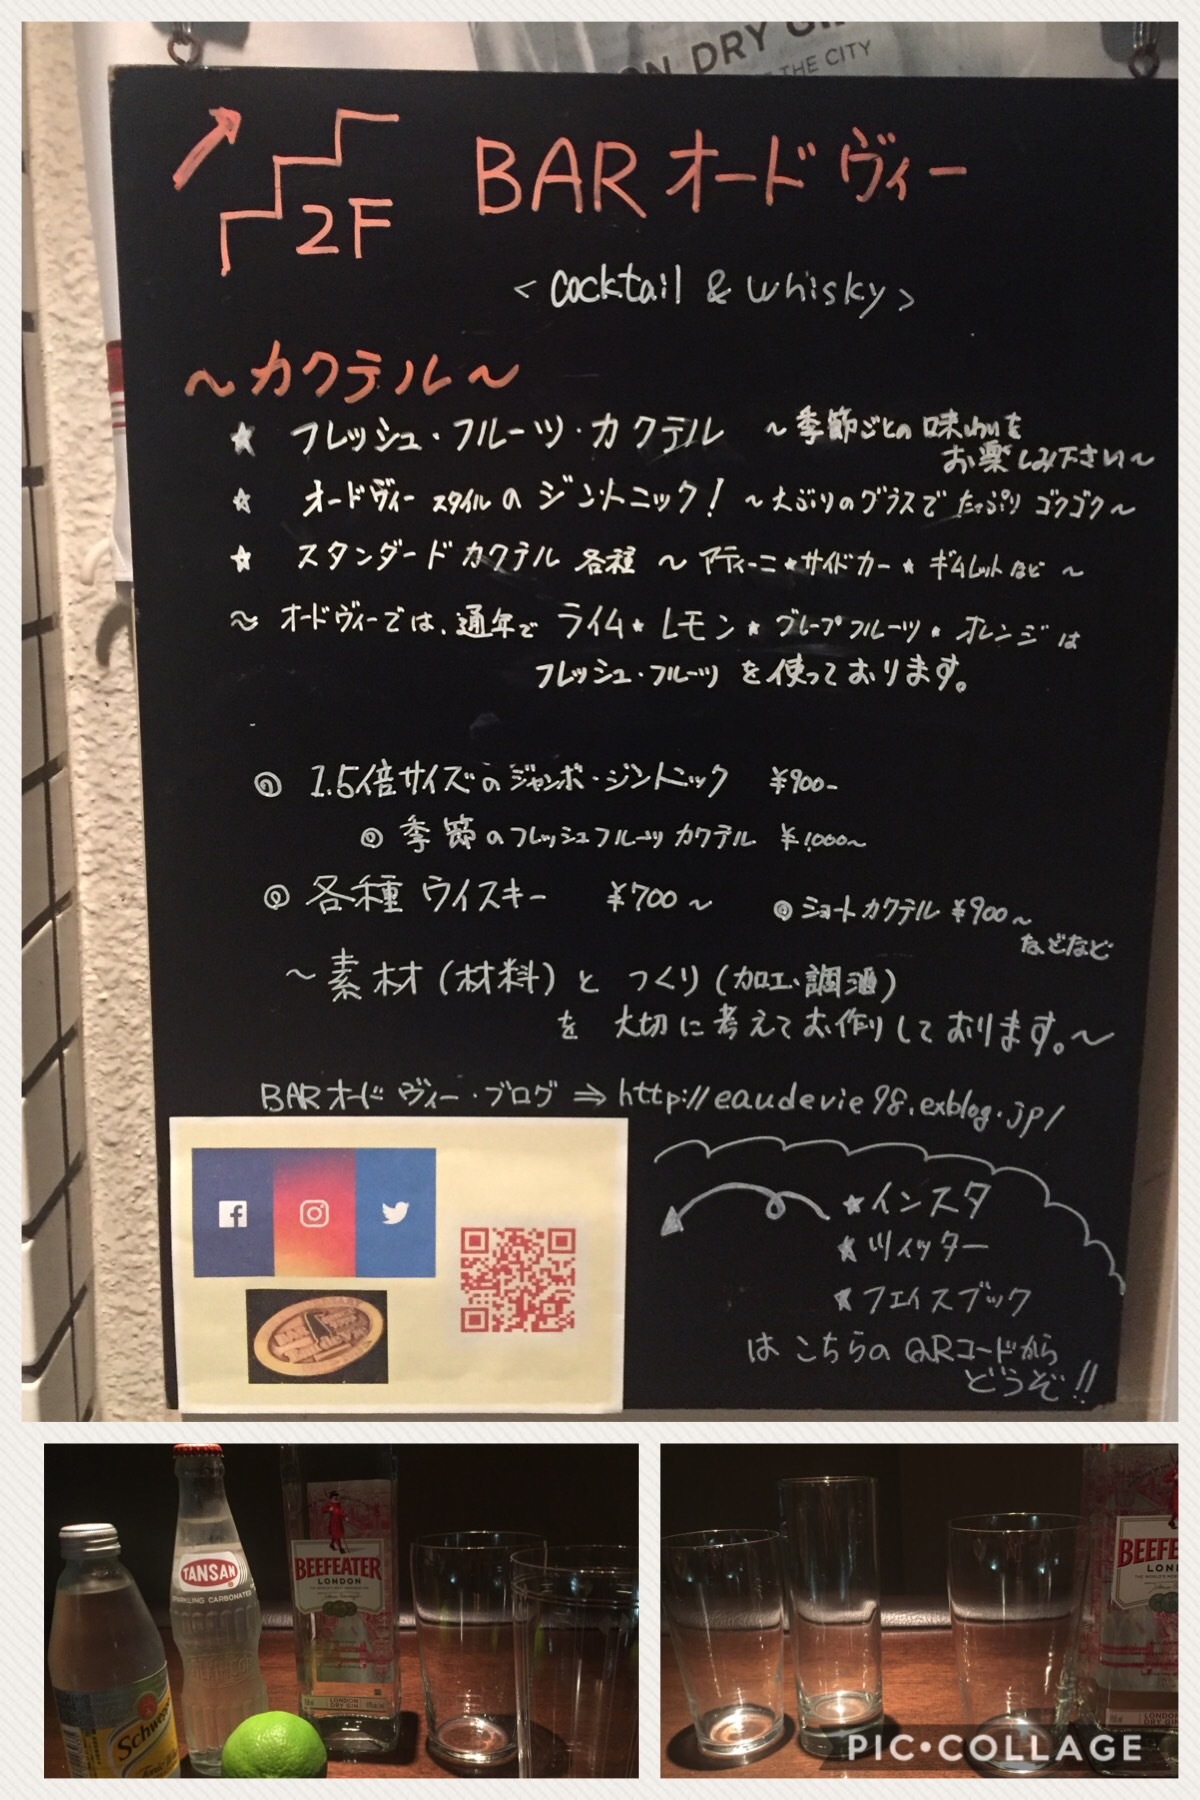 ON DRY GIN
THE CITY
2F
BAR オードヴィー
< Cocktail & Whisky >
〜カクテル〜
★ フレッシュ・フルーツ・カクテル 〜季節ごとの味わいを
お楽しみ下さい〜
☆ オードヴィースタイルのジントニック! 〜大ぶりのグラスでたっぷりゴクゴク〜
☆ スタンダードカクテル 各種 〜マティーニ★サイドカー★ギムレットなど〜
〜オードヴィーでは、通年でライム★レモン★グレープフルーツ★オレンジは
フレッシュ・フルーツを使っております。
◎ 1.5倍サイズのジャンボ・ジントニック ¥900-
◎ 季節のフレッシュフルーツカクテル ¥1,000〜
◎ 各種ウイスキー ¥700〜 ◎ショートカクテル ¥900〜
などなど
〜素材(材料)とつくり(加工、調酒)
を大切に考えてお作りしております。〜
BARオードヴィー・ブログ ⇒ http://eaudevie98.exblog.jp/
★インスタ
★ツィッター
★フェイスブック
はこちらのQRコードから
どうぞ!!
TANSAN
SPARKLING CARBONATED
BEEFEATER
LONDON
LONDON
DRY GIN
Schweppes
Tonic
BEEFE
LON
PIC•COLLAGE